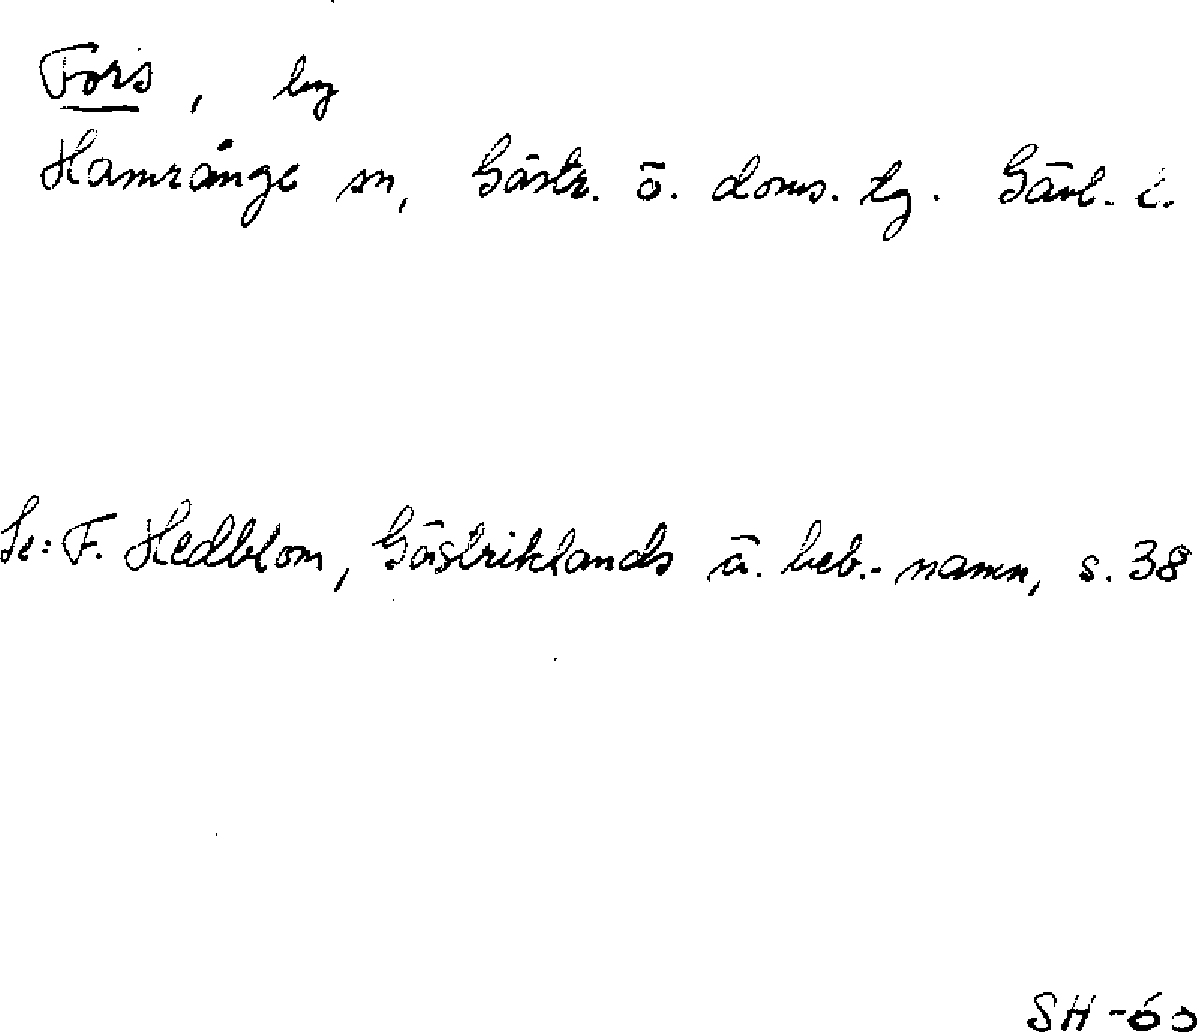 Fors, by
Hamrånge sn, Gästr. ö. doms. tg. Gävl. l.
Se: F. Hedblom, Gästriklands ä. beb.-namn, s. 38
SH-60